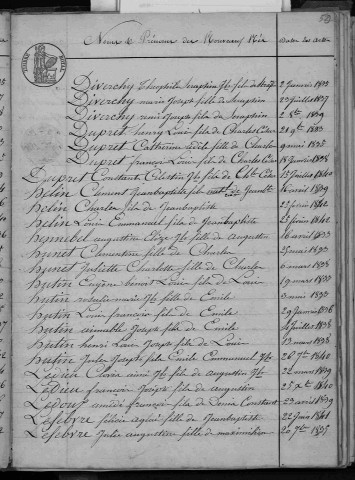 58
Noms & Prénoms des Nouveaux Nés Dates des Actes
Diverchy Théophile Séraphin fils de 2 Janvier 1833
Diverchy marie Joseph fille de Séraphin 27 Juillet 1837
Diverchy Joseph fils de Séraphin 2 8bre 1839
Dupret henry Louis fils de Charles 28 9bre 1833
Dupret Catherine fille de Charles 9 mai 1835
Dupret françois Louis fils de Charles 18 février 1838
Dupret Constant Célestin fils de 15 Juillet 1840
helin Clément Jeanbaptiste fils de 16 avril 1839
helin Charles fils de Jeanbaptiste 22 février 1842
helin Louis Emmanuel fils de Jeanbaptiste 25 février 1842
hennebel augustine fille de augustin 16 avril 1833
hunet Clémentine fille de Charles 25 mai 1833
hunet Juliette Charlotte fille de Charles 6 mars 1838
hutin Eugène benoit Louis fils de Louis 19 mars 1833
hutin rosalie marie fille de Emile 3 mai 1833
hutin Louis françois fils de Emile 29 Janvier 1836
hutin aimable Joseph fils de Emile 4 Juillet 1838
hutin henri Louis Joseph fils de Louis 13 mars 1838
hutin Jules Joseph fils Emile Emmanuel 26 7bre 1840
Ledieu aimé Joseph fils de augustin 22 mai 1839
Ledieu françois Joseph fils de augustin 25 Xbre 1840
Ledoux amédé françois fils de Louis Constant 23 avril 1839
Lefebvre fille de Jeanbaptiste 22 Juin 1841
Lefebvre Julie augustine fille de maximilien 20 7bre 1835